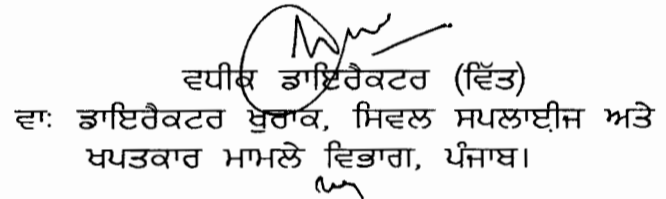 ਵਧੀਕ ਡਾਇਰੈਕਟਰ (ਵਿੱਤ)
ਵਾ: ਡਾਇਰੈਕਟਰ ਖੁਰਾਕ, ਸਿਵਲ ਸਪਲਾਈਜ਼ ਅਤੇ
ਖਪਤਕਾਰ ਮਾਮਲੇ ਵਿਭਾਗ, ਪੰਜਾਬ।